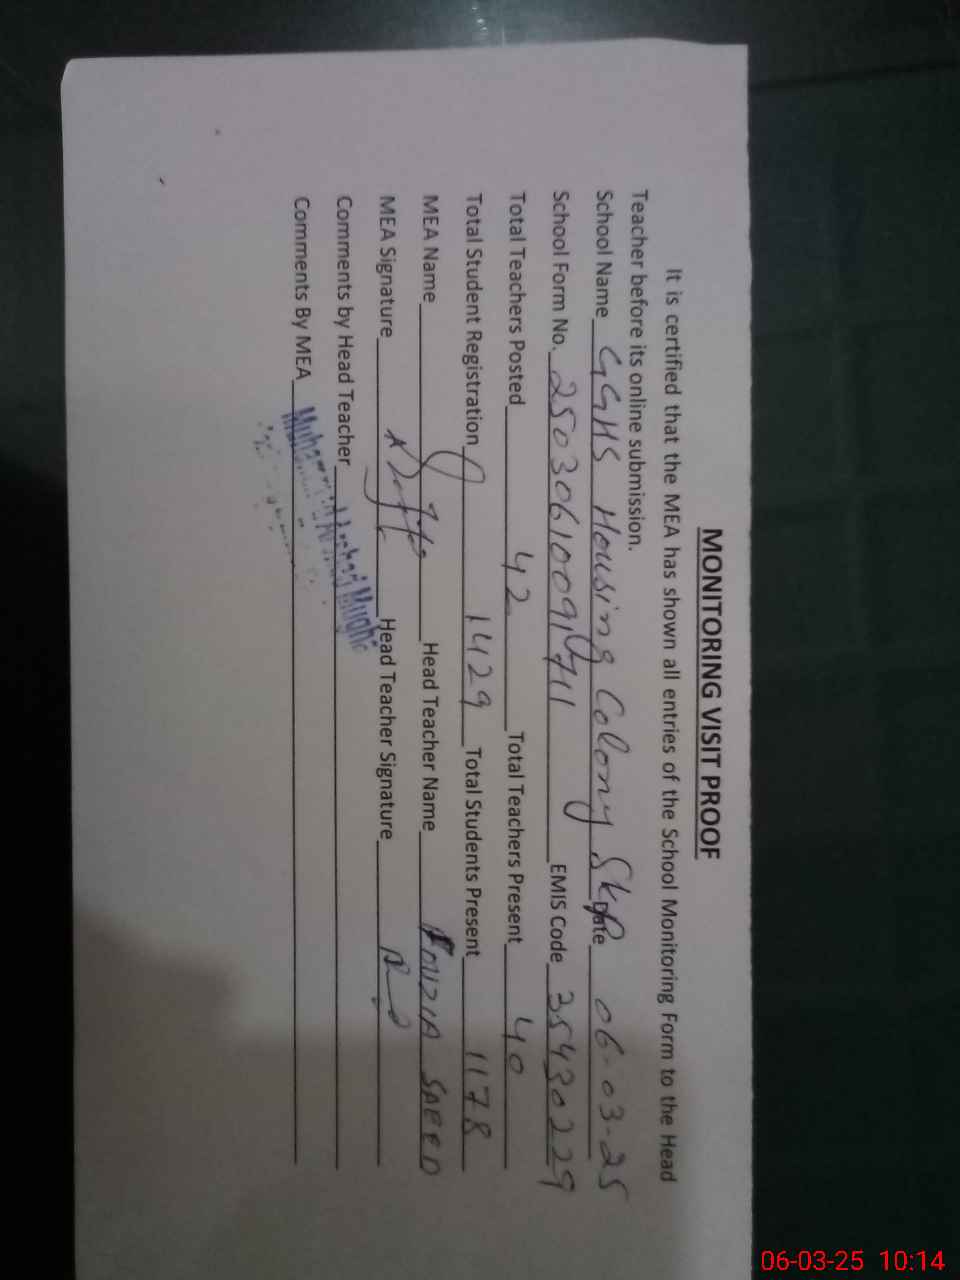 MONITORING VISIT PROOF
It is certified that the MEA has shown all entries of the School Monitoring Form to the Head
Teacher before its online submission.
School Name GGHS Housing Colony SKP Date 06-03-25
School Form No. 250306100910711 EMIS Code 35430229
Total Teachers Posted 42 Total Teachers Present 40
Total Student Registration 1429 Total Students Present 1178
MEA Name Head Teacher Name FOUZIA SAEED
MEA Signature Head Teacher Signature
Comments by Head Teacher
Comments By MEA
06-03-25 10:14